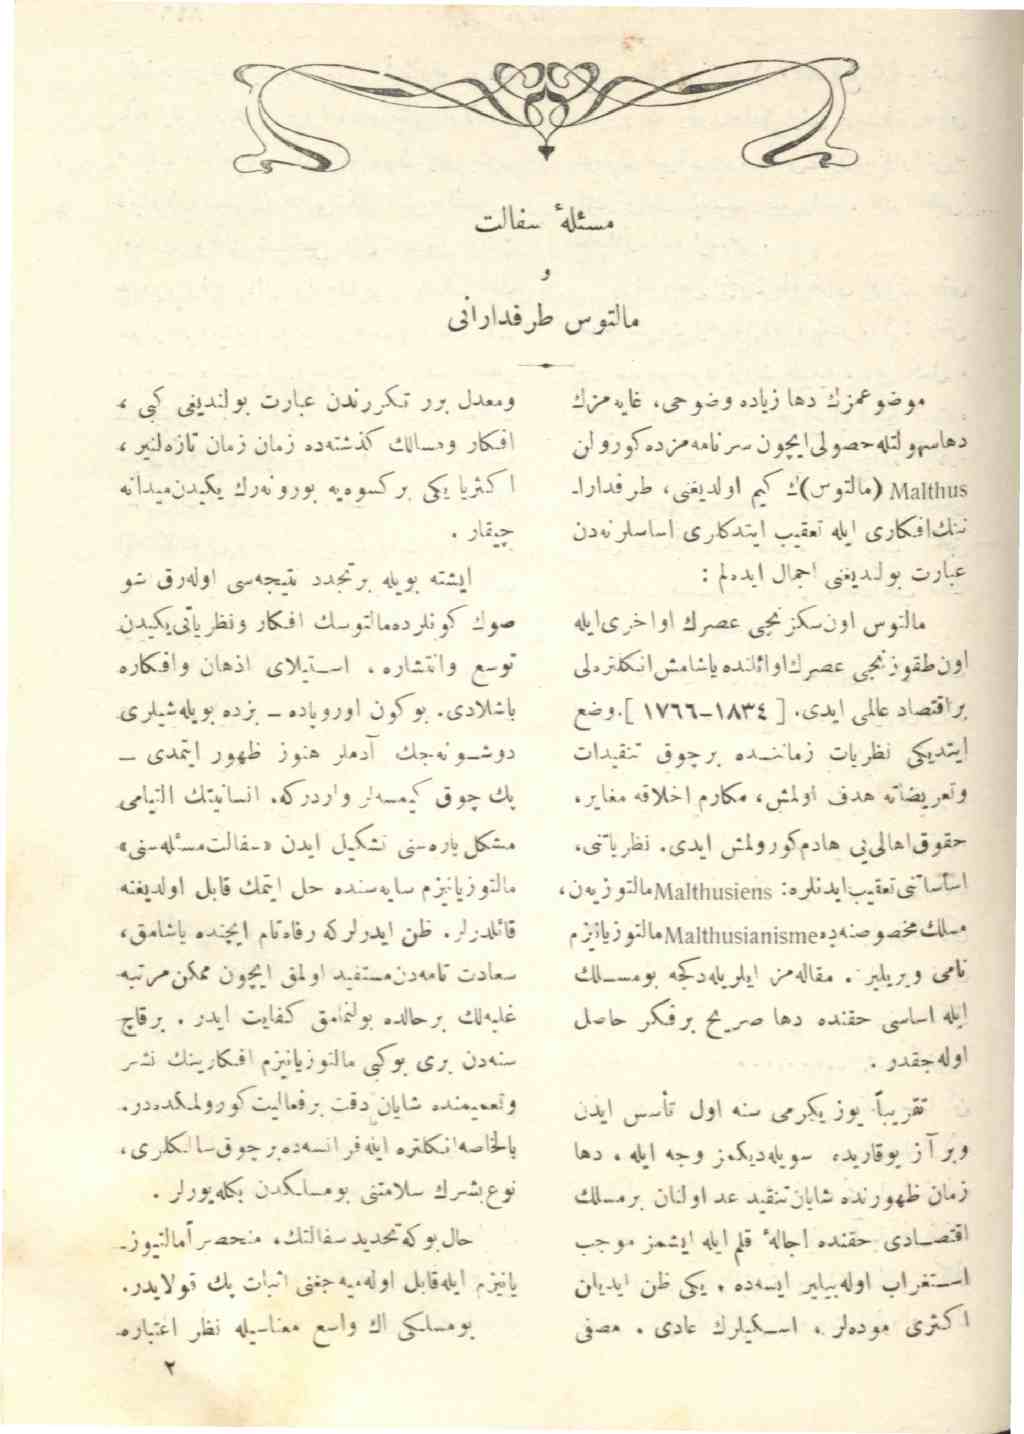 مسئلهٔ سفالت
و
مالتوس طرفدارانی
موضوعمزك دها زیاده وضوحی، غایه مزك
دهاسهولتله حصولی ایچون سرنامه مزده كورولن
Malthus (مالتوس)ك كیم اولدیغنی، طرفدارا‌ـ
ننك‌افكاری ایله تعقیب ایتدكلری اساسلرنه‌دن
عبارت بولندیغنی اجمال ایده‌لم :
مالتوس اون‌سكزنجی عصرك اواخری‌ایله
اون‌طقوزنجی عصرك‌اوائلنده یاشامش‌انكلتره‌لی
براقتصاد عالمی ایدی. [ ١٨٣٤–١٧٦٦ ].وضع
ایتدیكی نظریات زماننده برچوق تنقیدات
وتعریضاته هدف اولمش، مكارم اخلاقه مغایر،
حقوق‌اهالی‌یی هادم‌كورولمش ایدی. نظریاتنی،
اساساتنی‌تعقیب‌ایدنلره: Malthusiens مالتوزیه‌ن،
مسلك مخصوصنه‌ده Malthusianisme مالتوزیانیزم
نامی ویریلیر . مقاله‌مز ایلریله‌دكجه بومسلك
ایله اساسی حقنده دها صریح برفكر حاصل
اوله‌جقدر .
تقریباً یوز یكرمی سنه اول تأسس ایدن
وبر آز یوقاریده سویله‌دیكمز وجه ایله ، دها
زمان ظهورنده شایان‌تنقید عد اولنان برمسلك
اقتصادی حقنده اجالهٔ قلم ایله ایشمز موجب
استغراب اوله‌بیلیر ایسه‌ده ، یكی ظن ایدیلن
اكثری موده‌لر ، اسكیلرك عادی ، مصفی
ومعدل برر تكررندن عبارت بولندیغی كبی ،
افكار ومسالك كذشته‌ده زمان زمان تازه‌لنیر ،
اكثریا یكی بركسوه‌یه بورونه‌رك یكیدن‌میدانه
چیقار .
ایشته بویله برتجدد نتیجه‌سی اوله‌رق شو
صوك كونلرده‌مالتوسك افكار ونظریاتی‌یكیدن
توسع وانتشاره ، استیلای اذهان وافكاره
باشلادی. بوكون اوروپاده – بزده بویله‌شیلری
دوشونه‌جك آدملر هنوز ظهور ایتمدی –
پك چوق كیمسه‌لر واردركه، انسانیتك التیامی
مشكل یاره‌سنی تشكیل ایدن «سفالت‌مسئله‌سنی»
مالتوزیانیزم سایه‌سنده حل ایتمك قابل اولدیغنه
قائلدرلر. ظن ایدرلركه رفاه‌تام ایچنده یاشامق،
سعادت تامه‌دن‌مستفید اولمق ایچون ممكن‌مرتبه
غلبه‌لك برحالده بولنمامق كفایت ایدر . برقاچ
سنه‌دن بری بوكبی مالتوزیانیزم افكارینك نشر
وتعمیمنده شایان دقت برفعالیت‌كورولمكده‌در.
بالخاصه‌انكلتره ایله‌فرانسه‌ده‌برچوق‌سالكلری،
نوع‌بشرك سلامتنی بومسلكدن بكله‌یورلر .
حال‌بوكه‌تحدید سفالتك، منحصراًمالتیوز‌ـ
یانیزم ایله‌قابل اوله‌میه‌جغنی اثبات پك قولایدر.
بومسلكی اك واسع معناسیله نظر اعتباره
٢